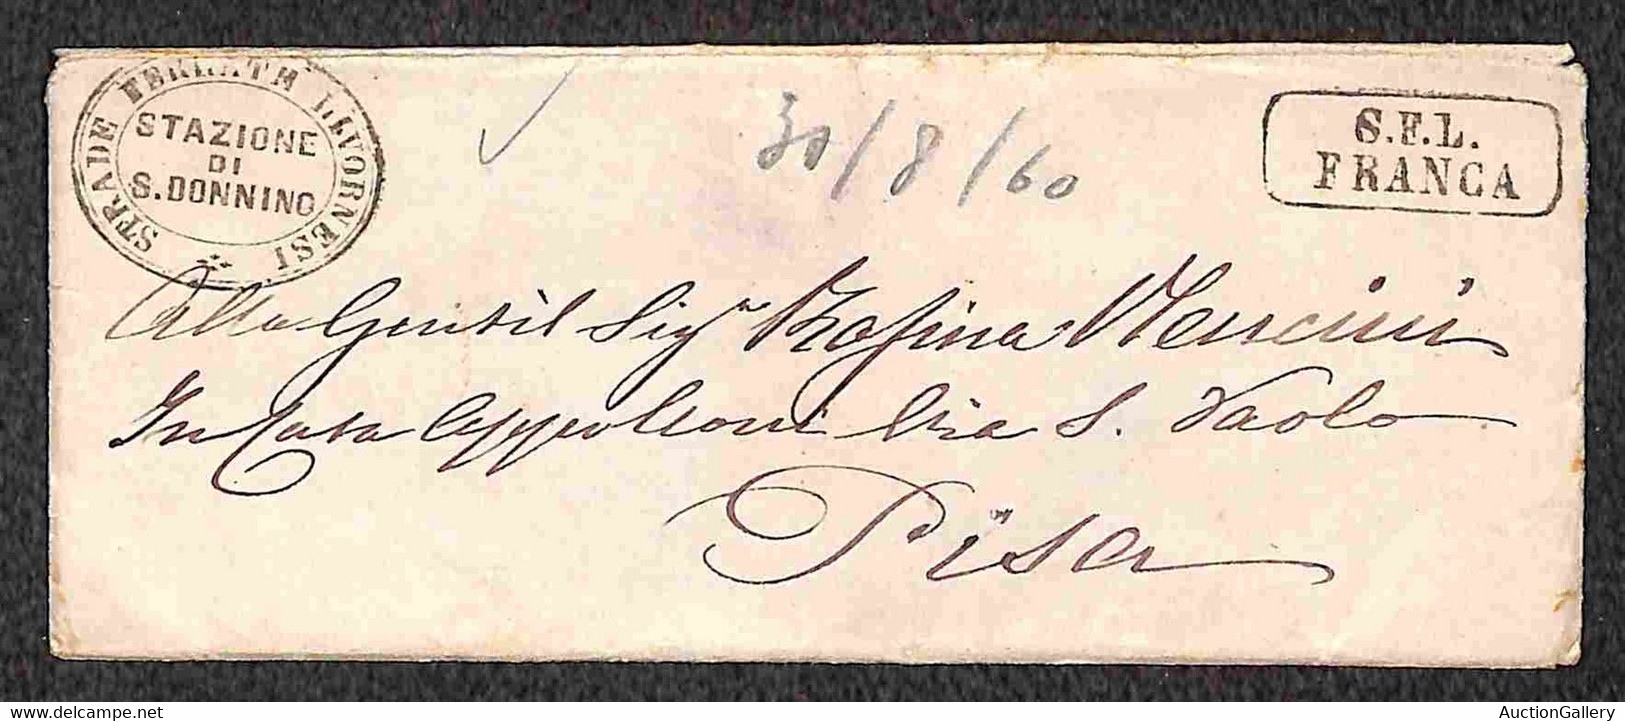 STRADE FERRATE LIVORNESI
STAZIONE
DI
S. DONNINO
30/8/60
S.F.L.
FRANCA
Alla Gentil Sigra Rosina Mencini
In Casa Appolloni Via S. Paolo
Pisa
AuctionGallery